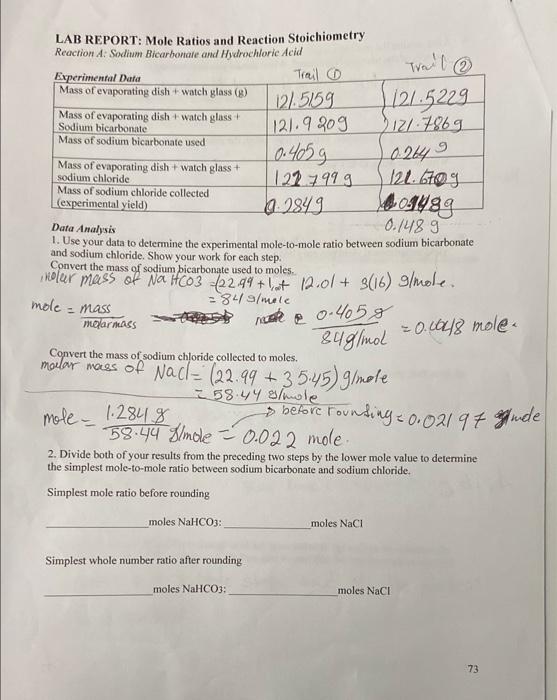 LAB REPORT: Mole Ratios and Reaction Stoichiometry
Reaction A: Sodium Bicarbonate and Hydrochloric Acid
Experimental Data Trail ① Trail ②
Mass of evaporating dish + watch glass (g) 121.515g 121.522g
Mass of evaporating dish + watch glass +
Sodium bicarbonate 121.920g 121.786g
Mass of sodium bicarbonate used 0.405g 0.264g
Mass of evaporating dish + watch glass +
sodium chloride 121.799g 121.670g
Mass of sodium chloride collected
(experimental yield) 0.284g
0.148 g
Data Analysis
1. Use your data to determine the experimental mole-to-mole ratio between sodium bicarbonate
and sodium chloride. Show your work for each step.
Convert the mass of sodium bicarbonate used to moles.
molar mass of NaHCO3 = (22.99 + 1.01 + 12.01 + 3(16) g/mole.
= 84 g/mole
mole = mass
molarmass
0.405 g
84g/mol
Convert the mass of sodium chloride collected to moles.
molar mass of NaCl = (22.99 + 35.45) g/mole
= 58.44 g/mole
→ before rounding = 0.02197
mole = 1.284 g
58.44 g/mole = 0.022 mole.
2. Divide both of your results from the preceding two steps by the lower mole value to determine
the simplest mole-to-mole ratio between sodium bicarbonate and sodium chloride.
Simplest mole ratio before rounding
moles NaHCO3: moles NaCl
Simplest whole number ratio after rounding
moles NaHCO3: moles NaCl
73